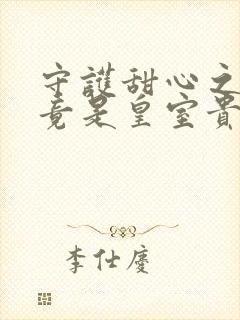 守護甜心之
竟是皇室貴
李仕慶